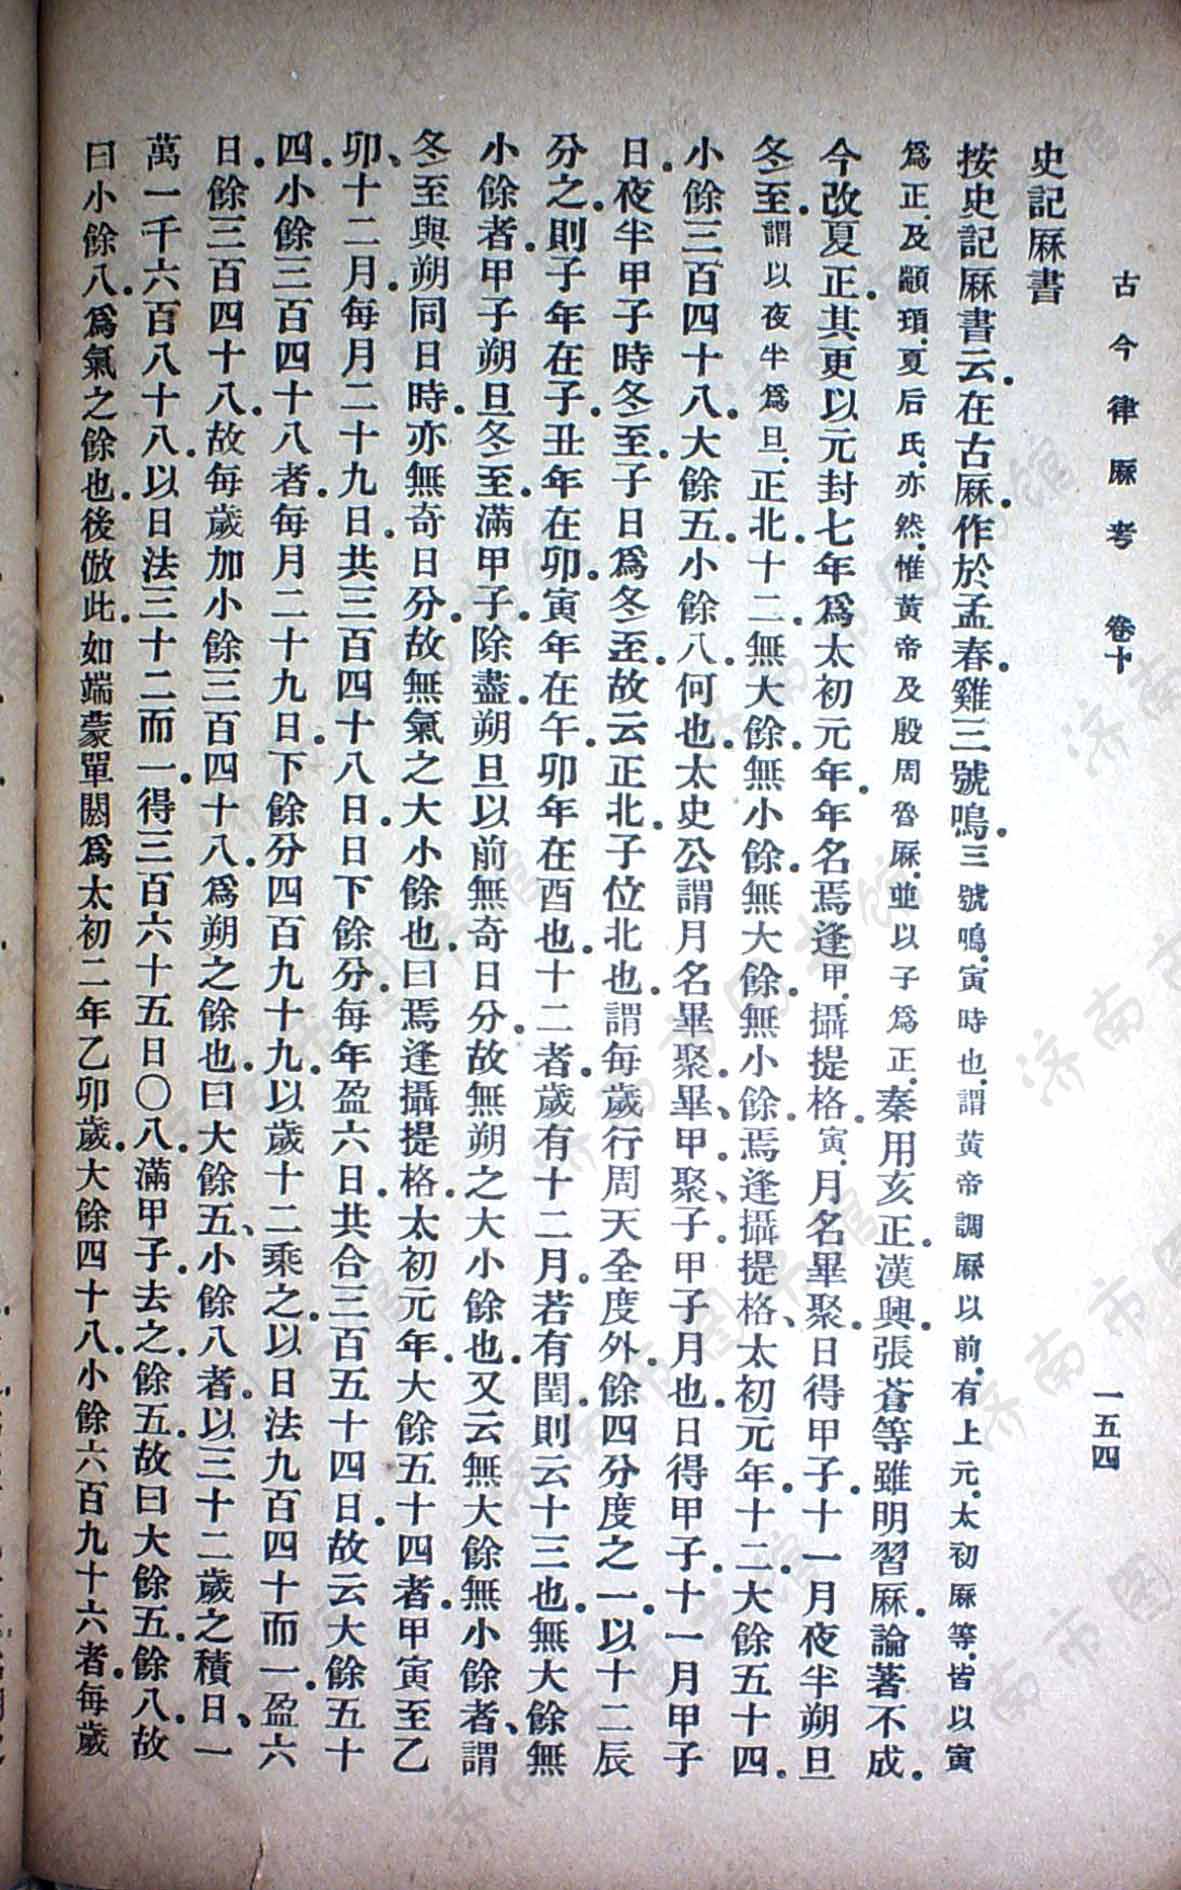 古今律厤考 卷十 一五四
史記厤書
按史記厤書云。在古厤。作於孟春。雞三號鳴。三號鳴。寅時也。謂黃帝調厤以前。有上元。太初厤等。皆以寅
爲正。及顓頊。夏后氏。亦然。惟黃帝及殷周魯厤。並以子爲正。秦用亥正。漢興。張蒼等雖明習厤。論著不成。
今改夏正。其更以元封七年。爲太初元年。年名焉逢甲。攝提格。寅。月名畢聚。日得甲子。十一月夜半朔旦
冬至。謂以夜半爲旦。正北。十二。無大餘。無小餘。無大餘。無小餘。焉逢攝提格、太初元年。十二。大餘五十四。
小餘三百四十八。大餘五。小餘八。何也。太史公謂月名畢聚。畢、甲。聚、子。甲子月也。日得甲子。十一月甲子
日。夜半甲子時冬至。子日爲冬至。故云正北。子位北也。謂每歲行周天全度外。餘四分度之一。以十二辰
分之。則子年在子。丑年在卯。寅年在午。卯年在酉也。十二者。歲有十二月。若有閏。則云十三也。無大餘無
小餘者。甲子朔旦冬至。滿甲子。除盡。朔旦以前無奇日分。故無朔之大小餘也。又云無大餘無小餘者、謂
冬至與朔同日時。亦無奇日分。故無氣之大小餘也。曰焉逢攝提格。太初元年。大餘五十四者。甲寅至乙
卯、十二月。每月二十九日。共三百四十八日。日下餘分。每年盈六日。共合三百五十四日。故云大餘五十
四。小餘三百四十八者。每月二十九日。下餘分四百九十九。以歲十二乘之。以日法九百四十而一。盈六
日。餘三百四十八。故每歲加小餘三百四十八。爲朔之餘也。曰大餘五、小餘八者。以三十二歲之積日、一
萬一千六百八十八。以日法三十二而一。得三百六十五日〇八。滿甲子。去之。餘五。故曰大餘五。餘八。故
曰小餘八。爲氣之餘也。後倣此。如端蒙單閼爲太初二年乙卯歲。大餘四十八。小餘六百九十六者。每歲